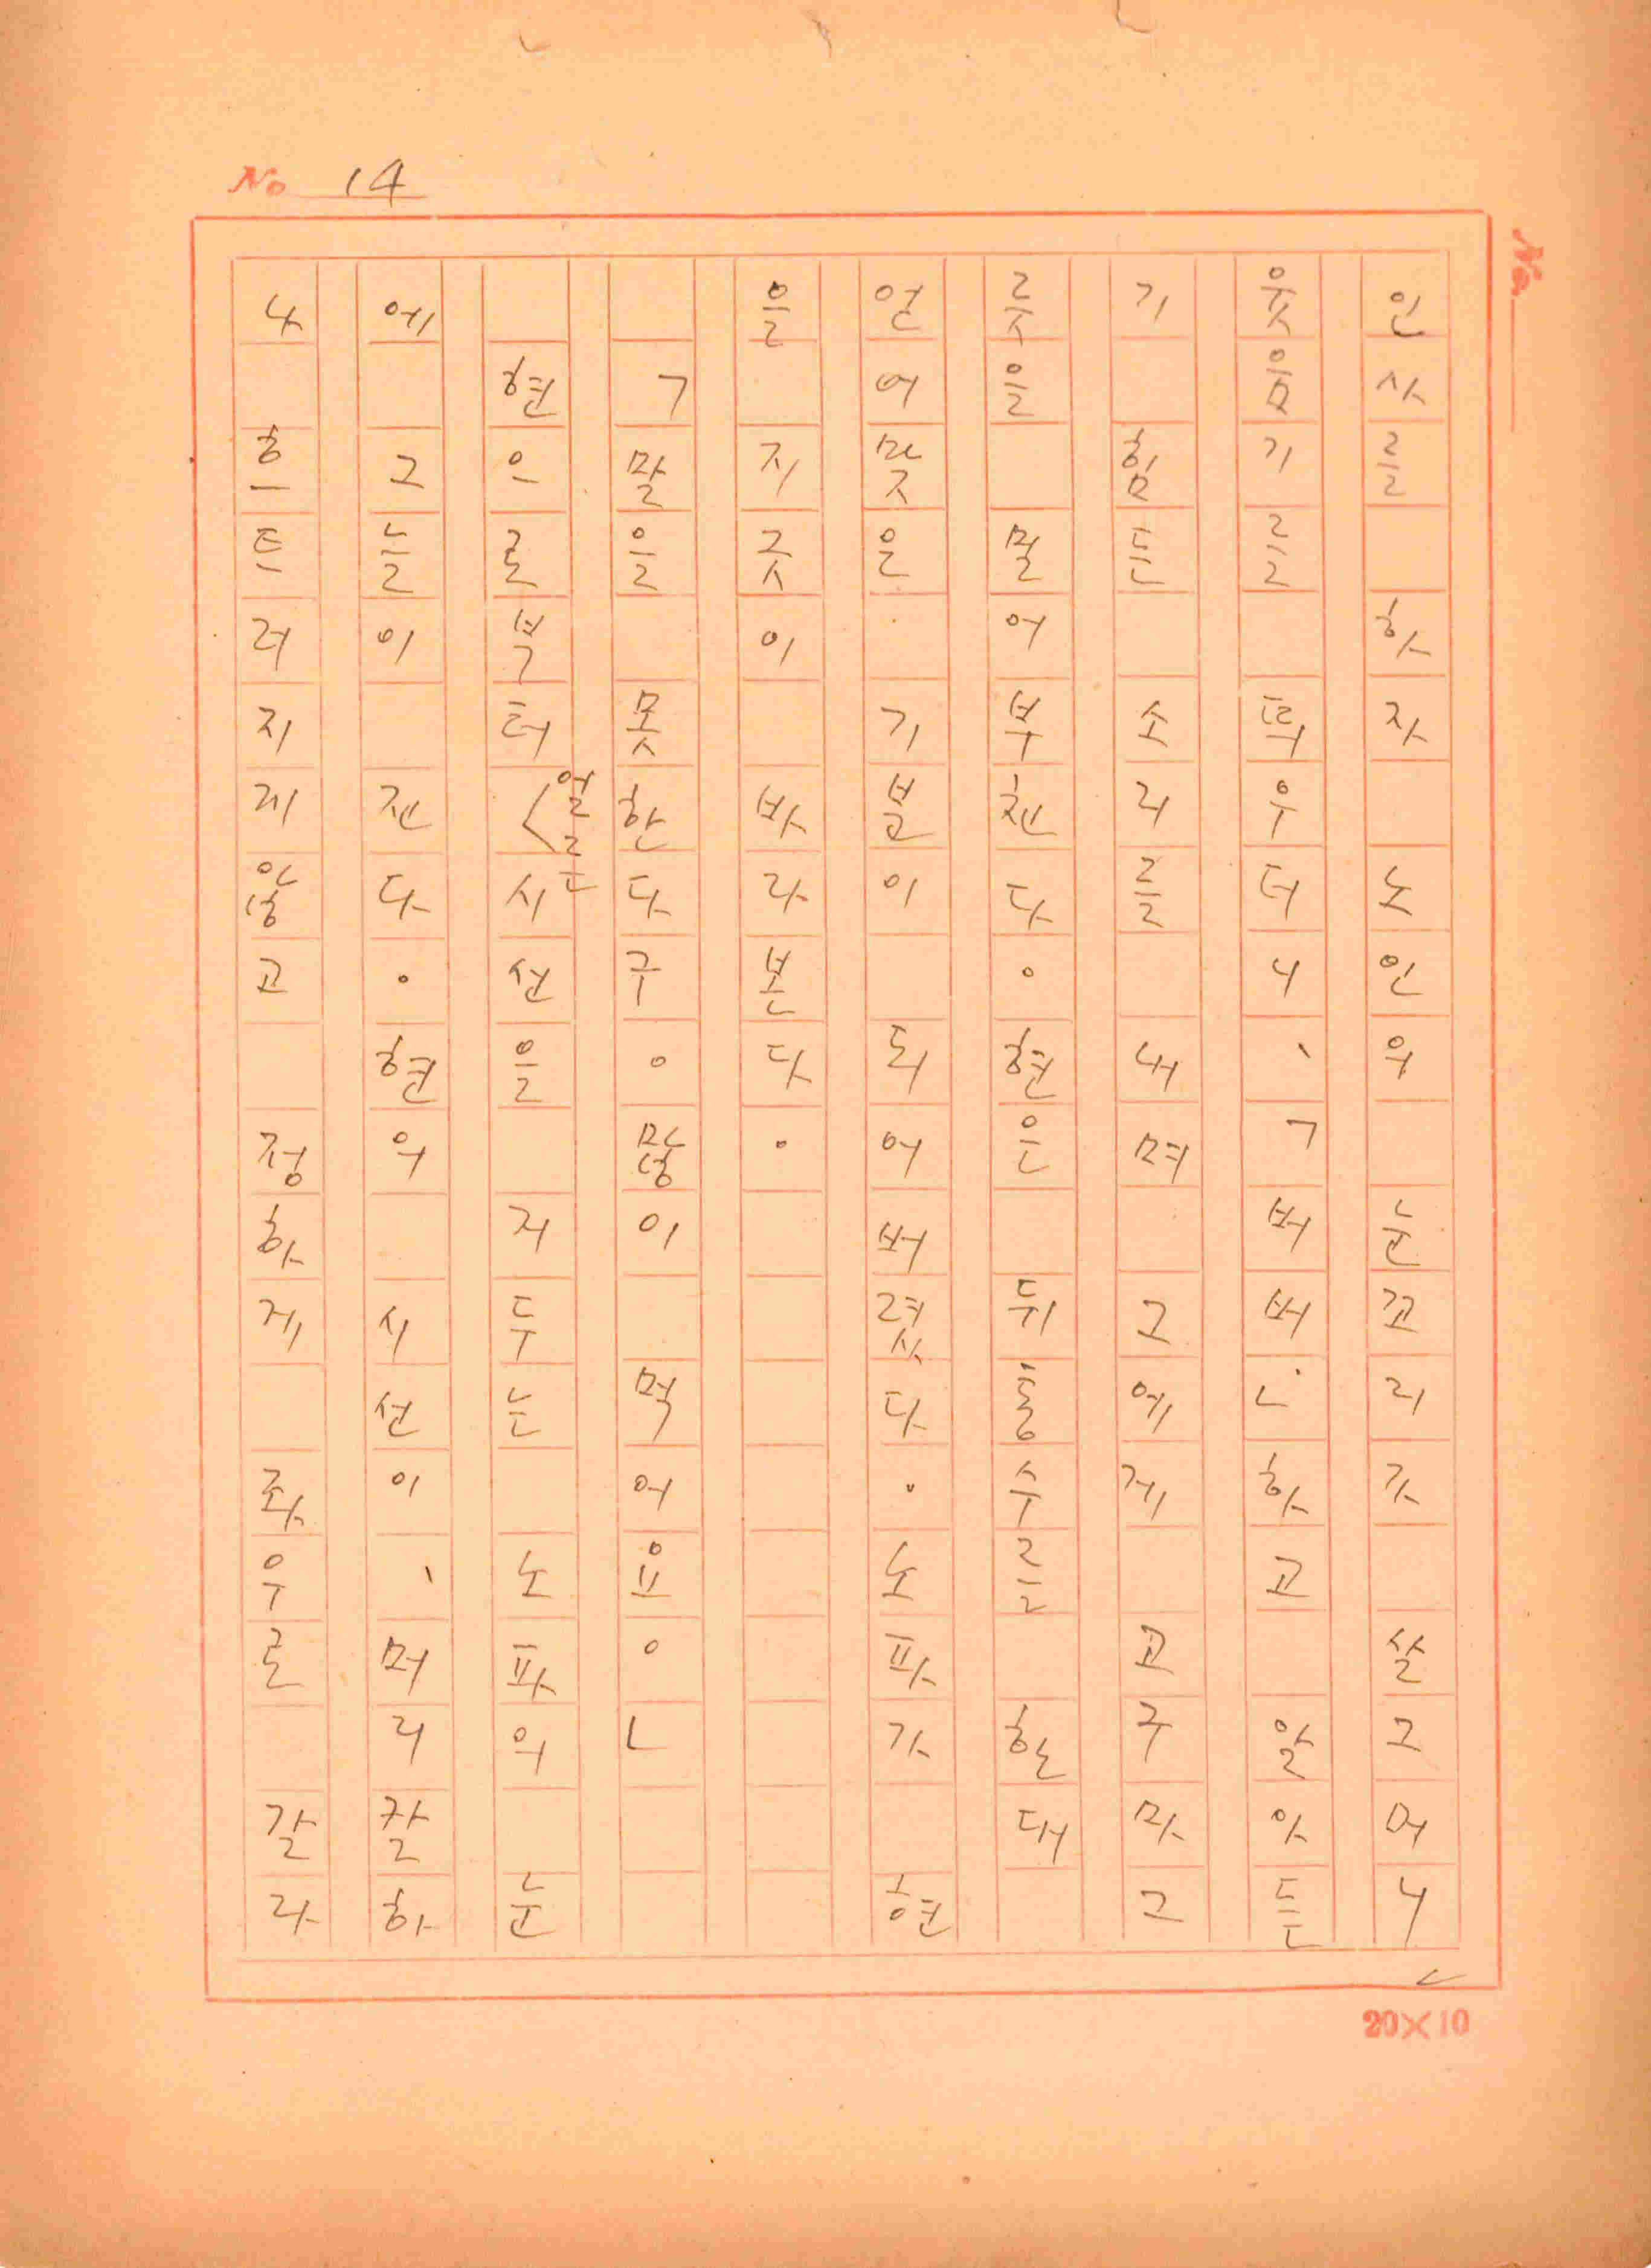 No 14
No.
인사를 하자 노인의 눈꼬리가 쓸그머니
웃음기를 띄우더니、「버버」하고 알아듣
기 힘든 소리를 내며 그에게 고구마그
릇을 밀어부친다。현은 뒤통수를 한대
얻어맞은 기분이 되어버렸다。노파가 현
을 지긋이 바라본다。
「말을 못한다구。많이 먹어요。」
현으로부터 얼른 시선을 거두는 노파의 눈
에 그늘이 진다。현의 시선이、머리칼하
나 흐트러지지않고 정하게 좌우로 갈라
20×10